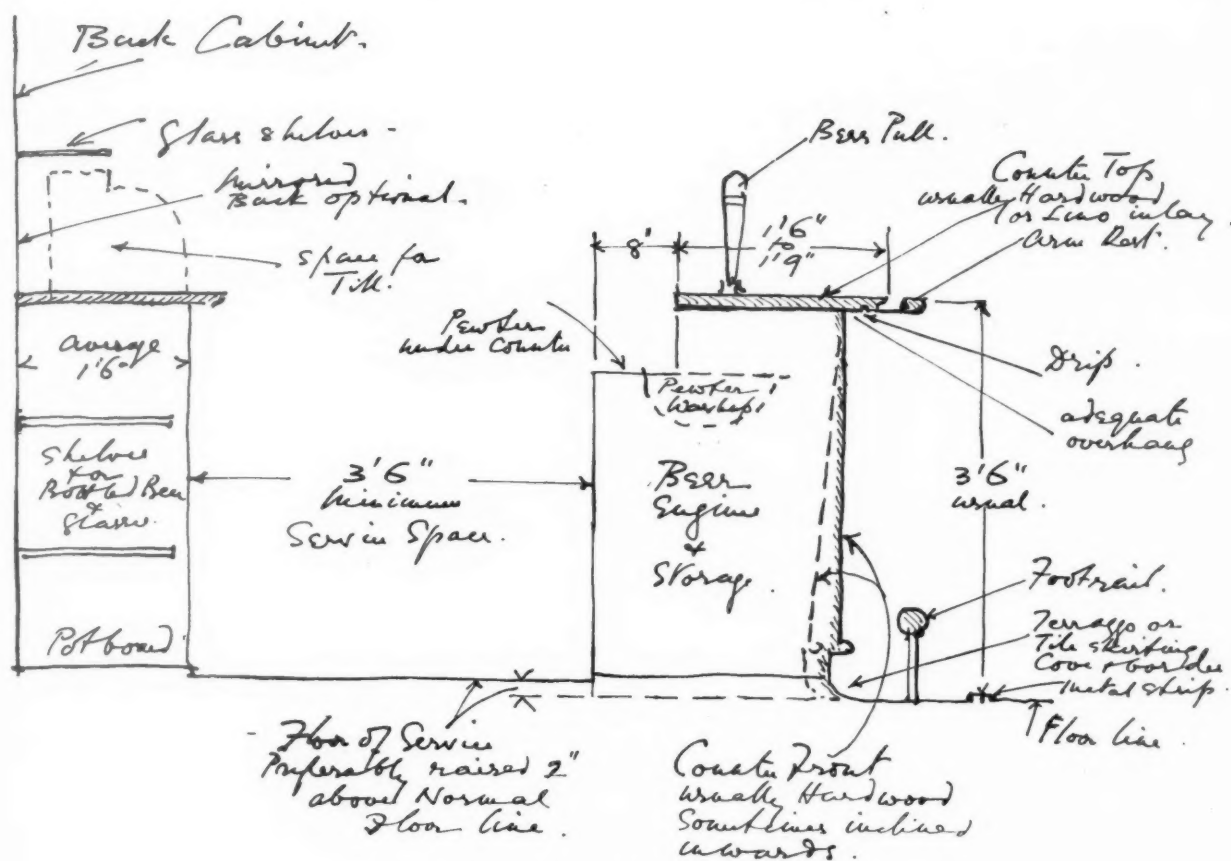 Back Cabinet.
Glass shelves -
Mirrored
Back optional.
Space for
Till.
average
1'6"
Shelves
for
Bottled Beer
&
Glasses.
Pot board
3'6"
Minimum
Service Space.
Floor of Service
Preferably raised 2"
above Normal
Floor line.
8"
Pewter
under Counter
Beer Pull.
1'6"
to
1'9"
Counter Top
usually Hardwood
or Lino inlay.
Arm Rest.
Pewter
Washup
Beer
Engine
&
Storage.
Drip.
adequate
overhang
3'6"
usual.
Footrail.
Terrazzo or
Tile skirting
Cove & border
metal strip.
Floor line.
Counter Front
usually Hardwood
Sometimes inclined
inwards.